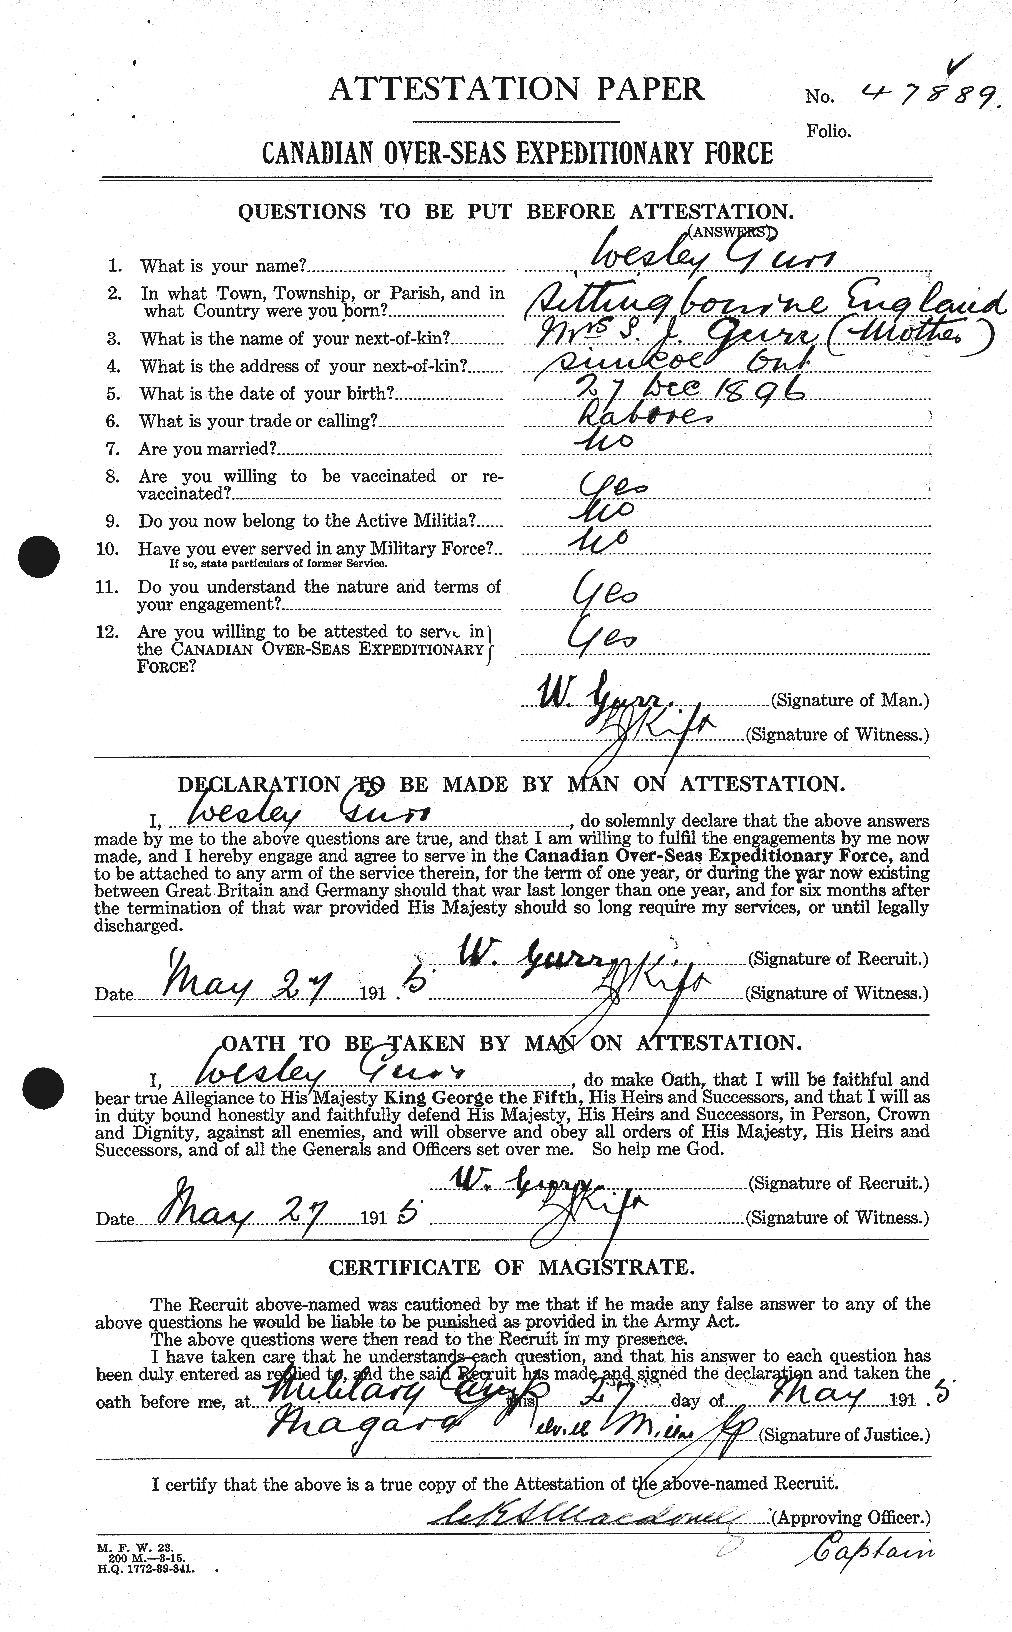 No. 47889.
ATTESTATION PAPER
Folio.
CANADIAN OVER-SEAS EXPEDITIONARY FORCE
QUESTIONS TO BE PUT BEFORE ATTESTATION.
(ANSWERS)
1. What is your name? Wesley Gurr
2. In what Town, Township, or Parish, and in
what Country were you born? Sittingbourne England
3. What is the name of your next-of-kin? Mrs S. J. Gurr (Mother)
4. What is the address of your next-of-kin? Simcoe Ont
5. What is the date of your birth? 27 Dec 1896
6. What is your trade or calling? Laborer
7. Are you married? No
8. Are you willing to be vaccinated or re-
vaccinated? Yes
9. Do you now belong to the Active Militia? No
10. Have you ever served in any Military Force? No
If so, state particulars of former Service.
11. Do you understand the nature and terms of
your engagement? Yes
12. Are you willing to be attested to serve in
the CANADIAN OVER-SEAS EXPEDITIONARY Yes
FORCE?
W. Gurr. (Signature of Man.)
(Signature of Witness.)
DECLARATION TO BE MADE BY MAN ON ATTESTATION.
I, Wesley Gurr, do solemnly declare that the above answers
made by me to the above questions are true, and that I am willing to fulfil the engagements by me now
made, and I hereby engage and agree to serve in the Canadian Over-Seas Expeditionary Force, and
to be attached to any arm of the service therein, for the term of one year, or during the war now existing
between Great Britain and Germany should that war last longer than one year, and for six months after
the termination of that war provided His Majesty should so long require my services, or until legally
discharged.
W. Gurr (Signature of Recruit.)
Date May 27 1915 (Signature of Witness.)
OATH TO BE TAKEN BY MAN ON ATTESTATION.
I, Wesley Gurr, do make Oath, that I will be faithful and
bear true Allegiance to His Majesty King George the Fifth, His Heirs and Successors, and that I will as
in duty bound honestly and faithfully defend His Majesty, His Heirs and Successors, in Person, Crown
and Dignity, against all enemies, and will observe and obey all orders of His Majesty, His Heirs and
Successors, and of all the Generals and Officers set over me. So help me God.
W. Gurr. (Signature of Recruit.)
Date May 27 1915 (Signature of Witness.)
CERTIFICATE OF MAGISTRATE.
The Recruit above-named was cautioned by me that if he made any false answer to any of the
above questions he would be liable to be punished as provided in the Army Act.
The above questions were then read to the Recruit in my presence.
I have taken care that he understands each question, and that his answer to each question has
been duly entered as replied to, and the said Recruit has made and signed the declaration and taken the
oath before me, at Military Camp this 27 day of May 1915
Niagara (Signature of Justice.)
I certify that the above is a true copy of the Attestation of the above-named Recruit.
(Approving Officer.)
Captain
M. F. W. 23.
200 M.—3-15.
H.Q. 1772-39-341.